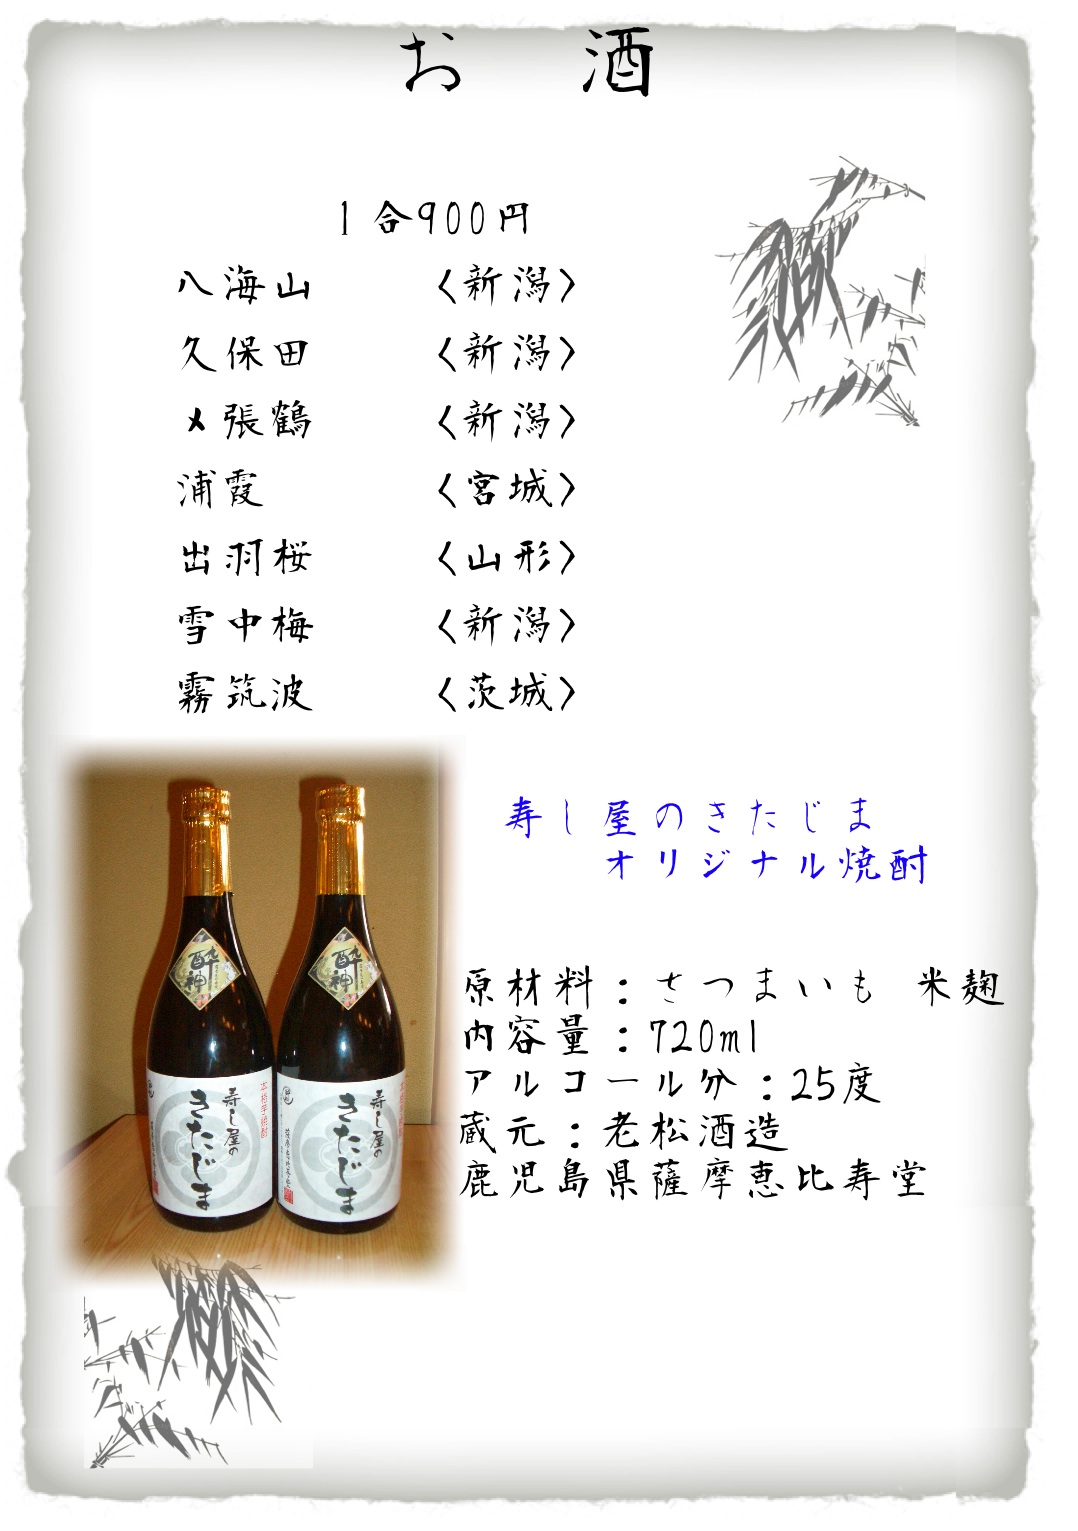 お 酒
1合900円
八海山 〈新潟〉
久保田 〈新潟〉
〆張鶴 〈新潟〉
浦霞 〈宮城〉
出羽桜 〈山形〉
雪中梅 〈新潟〉
霧筑波 〈茨城〉
寿し屋のきたじま
オリジナル焼酎
原材料:さつまいも 米麹
内容量:720ml
アルコール分:25度
蔵元:老松酒造
鹿児島県薩摩恵比寿堂
酔神
本格芋焼酎
寿し屋の
きたじま
酔神
本格芋焼酎
寿し屋の
きたじま